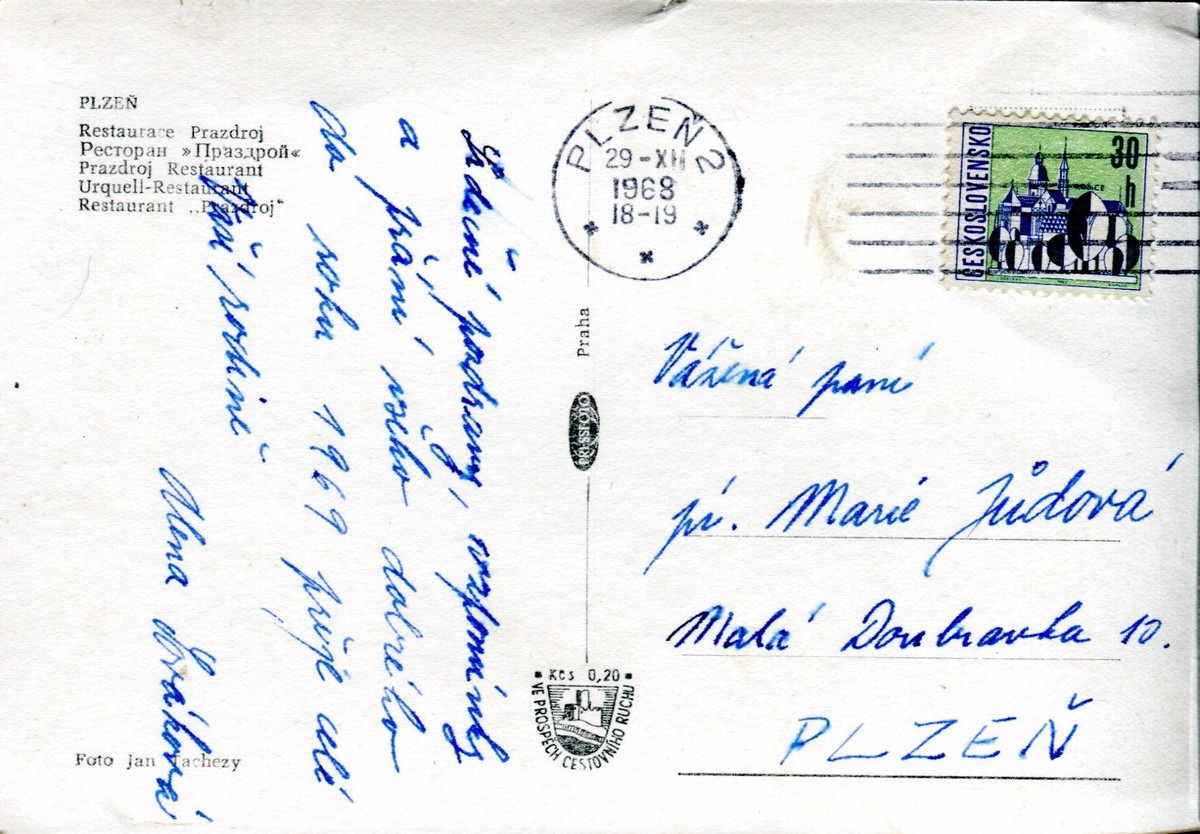 PLZEŇ
Restaurace Prazdroj
Ресторан »Праздрой«
Prazdroj Restaurant
Urquell-Restaurant
Restaurant „Prazdroj"
Srdečné pozdravy, vzpomínky
a přání všeho dobrého
do roku 1969 přeje celé
Vaší rodině
Alena
Foto Jan Tachezy
Praha
PRESSFOTO
Kčs 0,20
VE PROSPĚCH CESTOVNÍHO RUCHU
PLZEŇ 2
29-XII
1968
18-19
ČESKOSLOVENSKO
30
h
Vážená paní
pí. Marie Jůdová
Malá Doubravka 10.
PLZEŇ